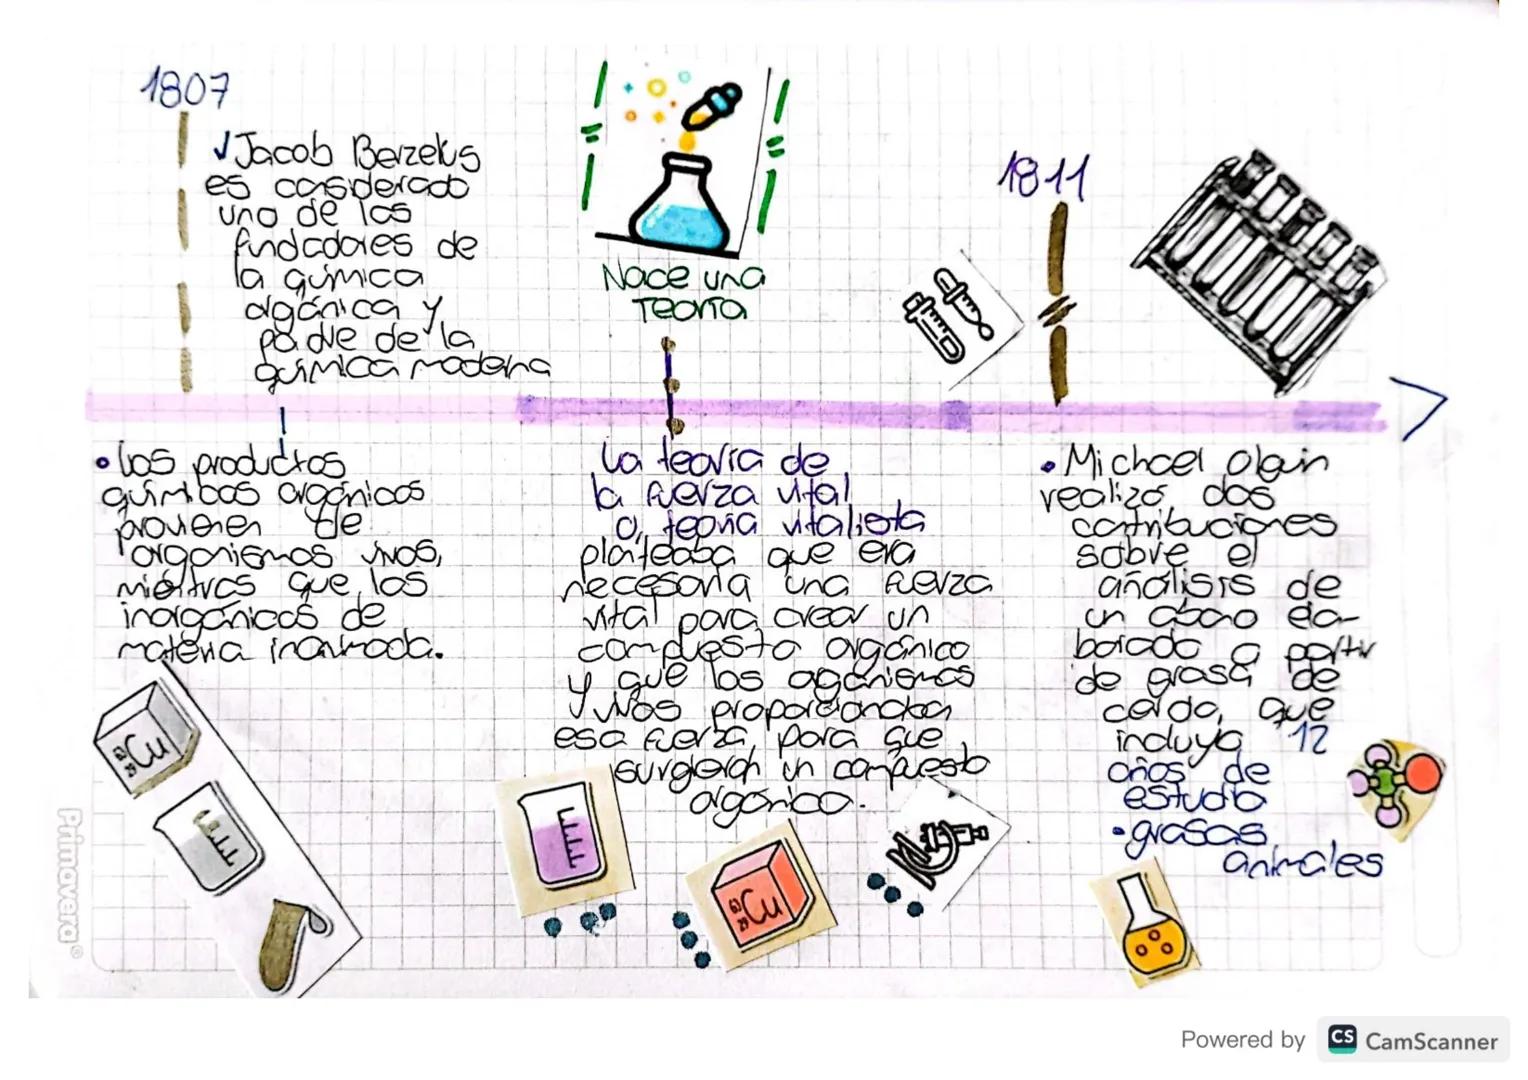 1807
✓Jacob Berzelus
es considerado
uno de los
fundadores de
la química
orgánica y
padre de la
química moderna
Nace una
Teoría
1811
• Los productos
químicos orgánicos
provienen de
organismos vivos,
mientras que los
inorgánicos de
materia inanimada.
La teoría de
la fuerza vital
o, teoría vitalista
planteaba que era
necesaria una fuerza
vital para crear un
compuesto orgánico
y que los organismos
vivos proporcionaban
esa fuerza, para que
surgieran un compuesto
orgánico.
• Michael Olguin
realizó dos
contribuciones
sobre el
análisis de
un abono ela-
borado a partir
de grasa de
cerdo, que
incluyó 12
años de
estudio
• grasas
animales
Cu
Cu
29
Primavera®
Powered by CS CamScanner